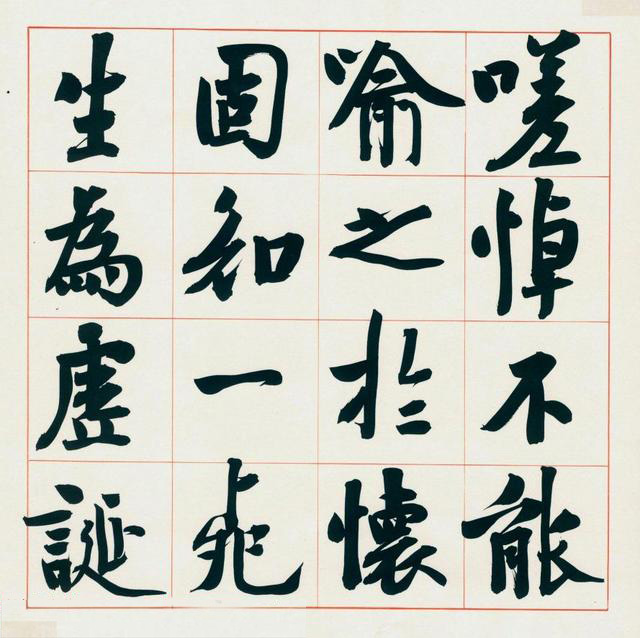 嗟悼不能
喻之於懷
固知一死
生為虛誕